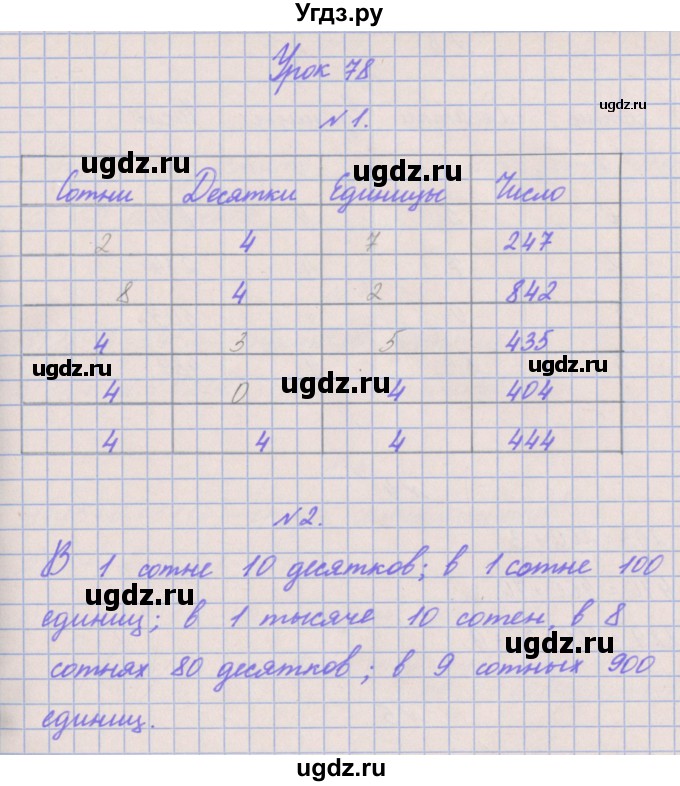 Угдз.ру
Урок 78
ugdz.ru
№1.
ugdz.ru
ugdz.ru
Сотни Десятки Единицы Число
2 4 7 247
8 4 2 842
4 3 5 435
ugdz.ru
ugdz.ru
ugdz.ru
4 0 4 404
4 4 4 444
№2.
В 1 сотне 10 десятков; в 1 сотне 100
ugdz.ru
единиц; в 1 тысяче 10 сотен, в 8
ugdz.ru
сотнях 80 десятков; в 9 сотных 900
единиц.
ugdz.ru